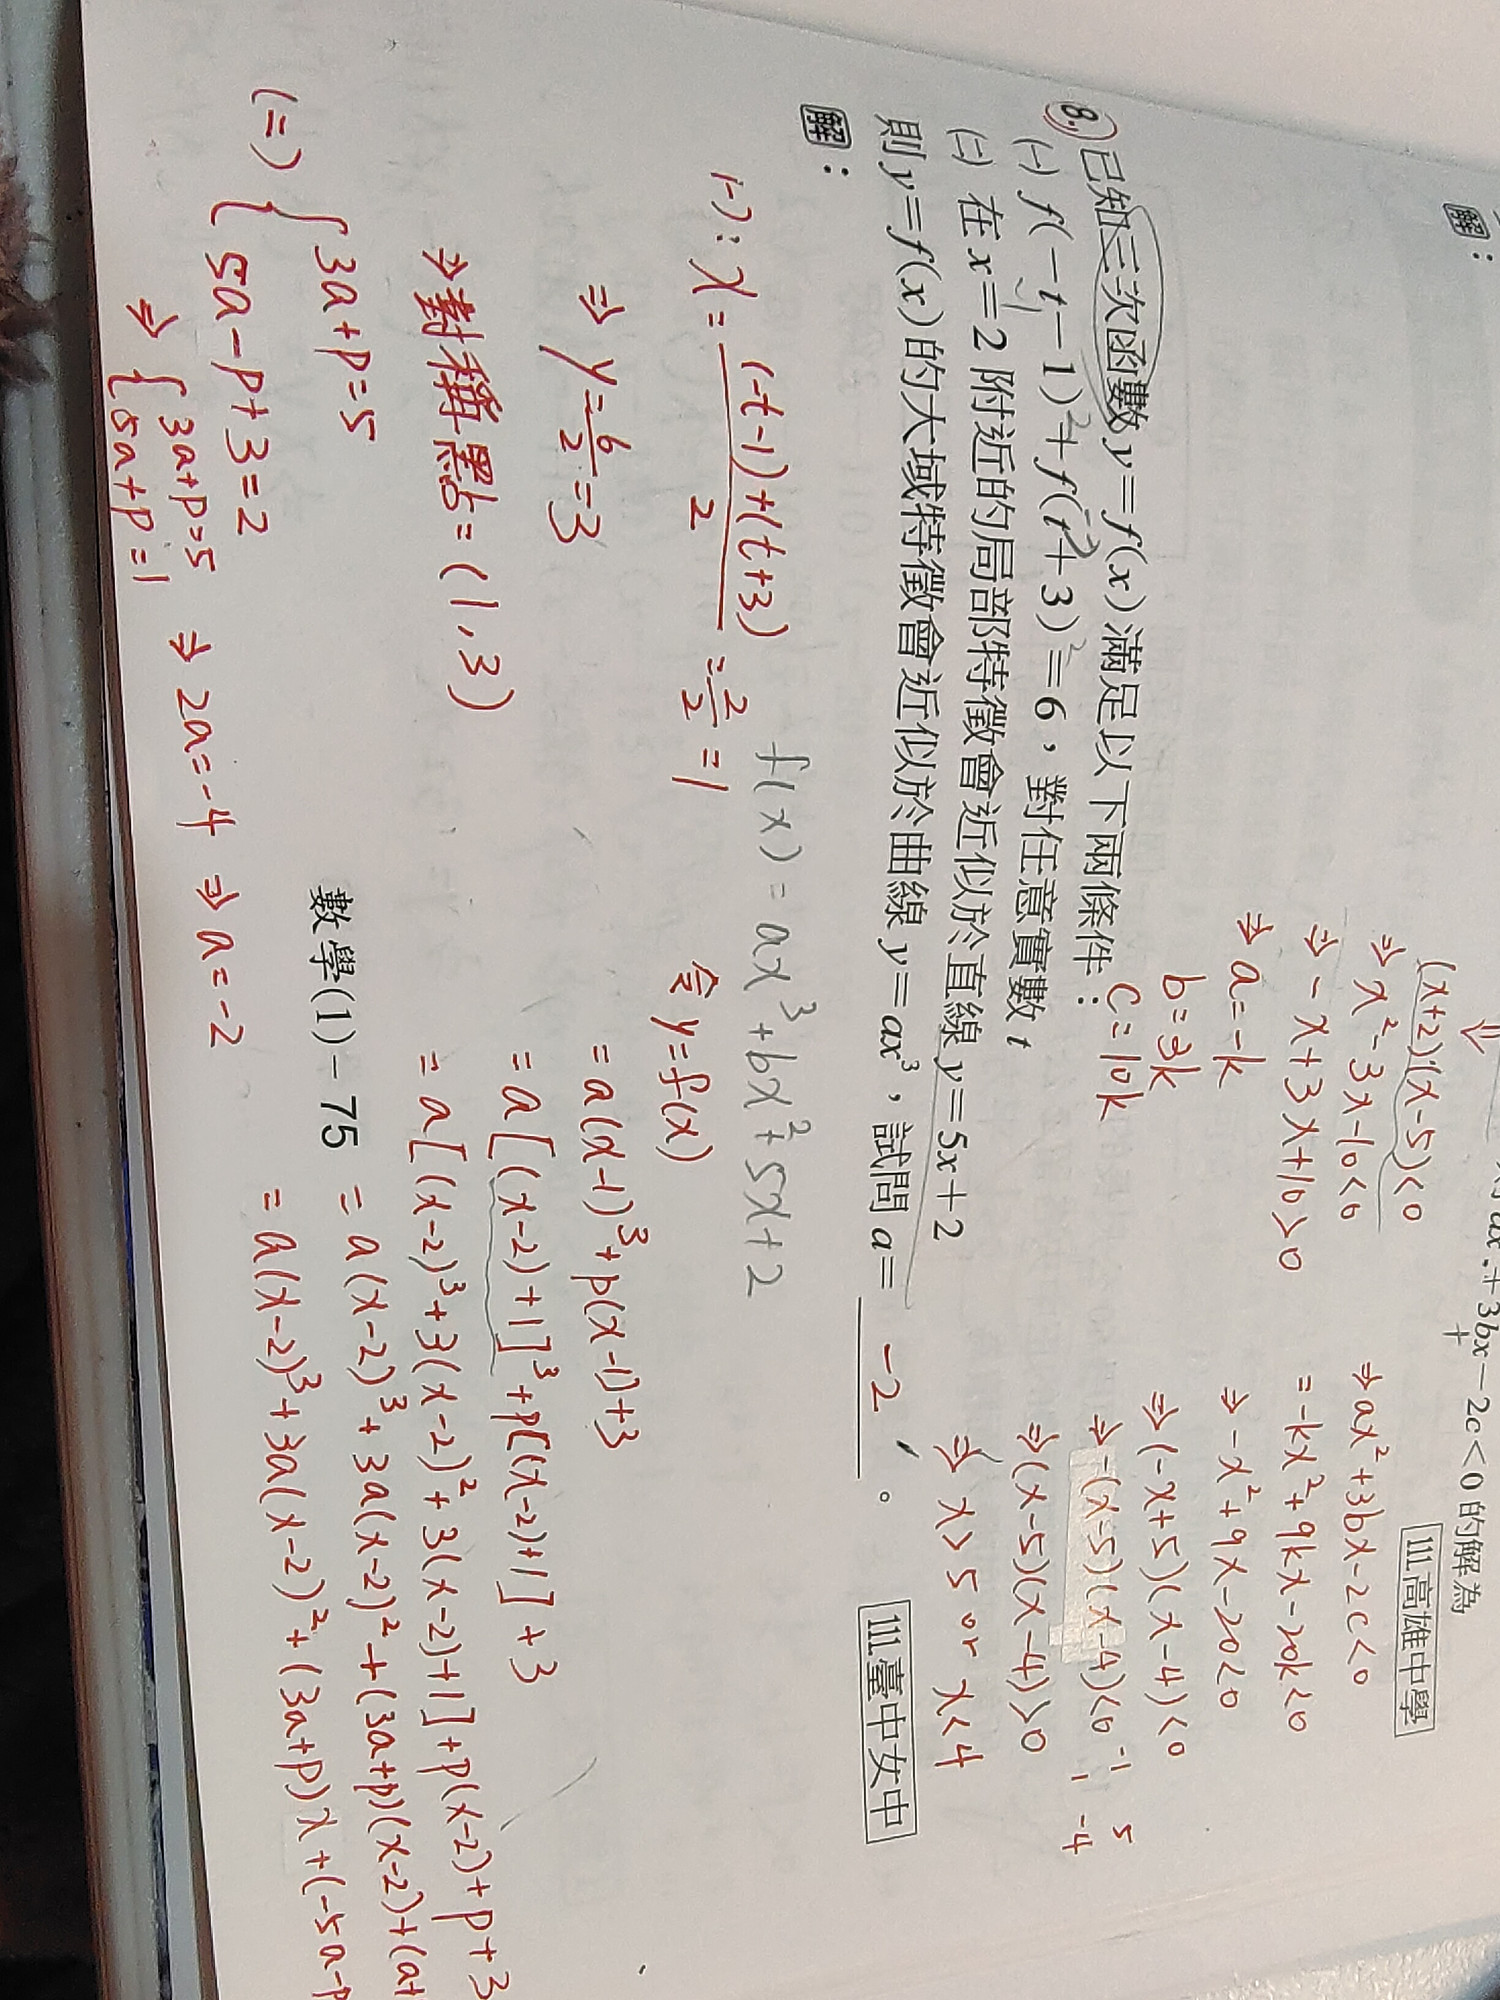 解：
(x+2)(x-5)<0
⇒ x²-3x-10<0
⇒ -x+3x+10>0
⇒ a=-k
b=3k
c=10k
+3bx-2c<0的解為
+
111高雄中學
⇒ ax²+3bx-2c<0
=-kx²+9kx-20k<0
⇒ -x²+9x-20<0
⇒ (-x+5)(x-4)<0
⇒ -(x-5)(x-4)<0
-1 5
1 -4
⇒ (x-5)(x-4)>0
⇒ x>5 or x<4
8. 已知三次函數y=f(x)滿足以下兩條件：
(一) f(-t-1)+f(t+3)=6，對任意實數t
(二) 在x=2附近的局部特徵會近似於直線y=5x+2
則y=f(x)的大域或特徵會近似於曲線y=ax³，試問a= -2 。 111臺中女中
解：
f(x)=ax³+bx²+5x+2
(一): x=\frac{(-t-1)+(t+3)}{2}=\frac{2}{2}=1
⇒ y=\frac{6}{2}=3
⇒ 對稱點=(1,3)
令 y=f(x)
=a(x-1)³+p(x-1)+3
=a[(x-2)+1]³+p[(x-2)+1]+3
=a[(x-2)³+3(x-2)²+3(x-2)+1]+p(x-2)+p+3
=a(x-2)³+3a(x-2)²+(3a+p)(x-2)+(a+
=a(x-2)³+3a(x-2)²+(3a+p)x+(-5a-p
(二) { 3a+p=5
5a-p+3=2
⇒ { 3a+p=5
5a+p=1
⇒ 2a=-4 ⇒ a=-2
數學(1)-75